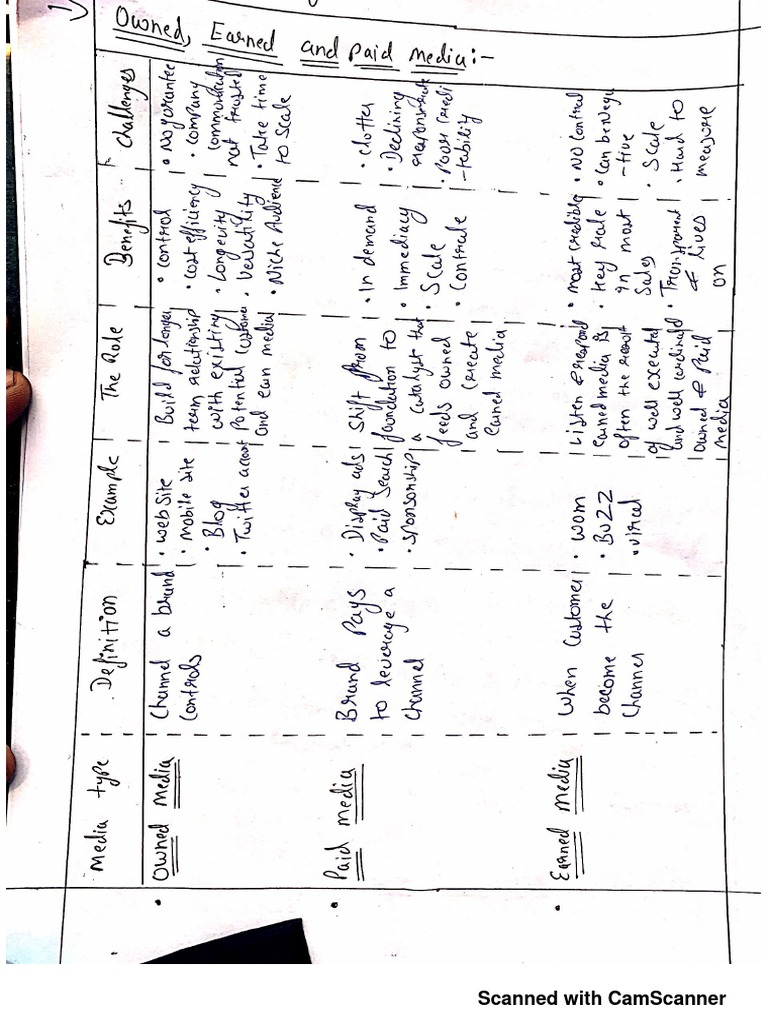 Owned, Earned and Paid Media:-
Media type
Definition
Example
The Role
Benefits
Challenges
Owned media
Channel a brand
controls
• website
• mobile site
• Blog
• Twitter account
Build for longer
term relationship
with existing
Potential customer
and earn media
• control
• cost efficiency
• Longevity
• Versatility
• Niche Audience
• No guarantee
• company
communication
not trusted
• Take time
to scale
Paid media
Brand Pays
to leverage a
channel
• Display ads
• Paid Search
• sponsorship
Shift from
foundation to
a catalyst that
feeds owned
and create
earned media
• In demand
• Immediacy
• Scale
• Controle
• clutter
• Declining
• Poor credi
-tability
Earned media
When Customer
become the
Channel
• wom
• BUZZ
• viral
Listen & respond
earned media is
often the result
of well executed
and well cordinated
owned & Paid
media
• most credible
• Key Role
in most
Sales
• Transparent
& Lives
on
• NO Control
• Can be Nega
-tive
• Scale
• Hard to
measure
Scanned with CamScanner